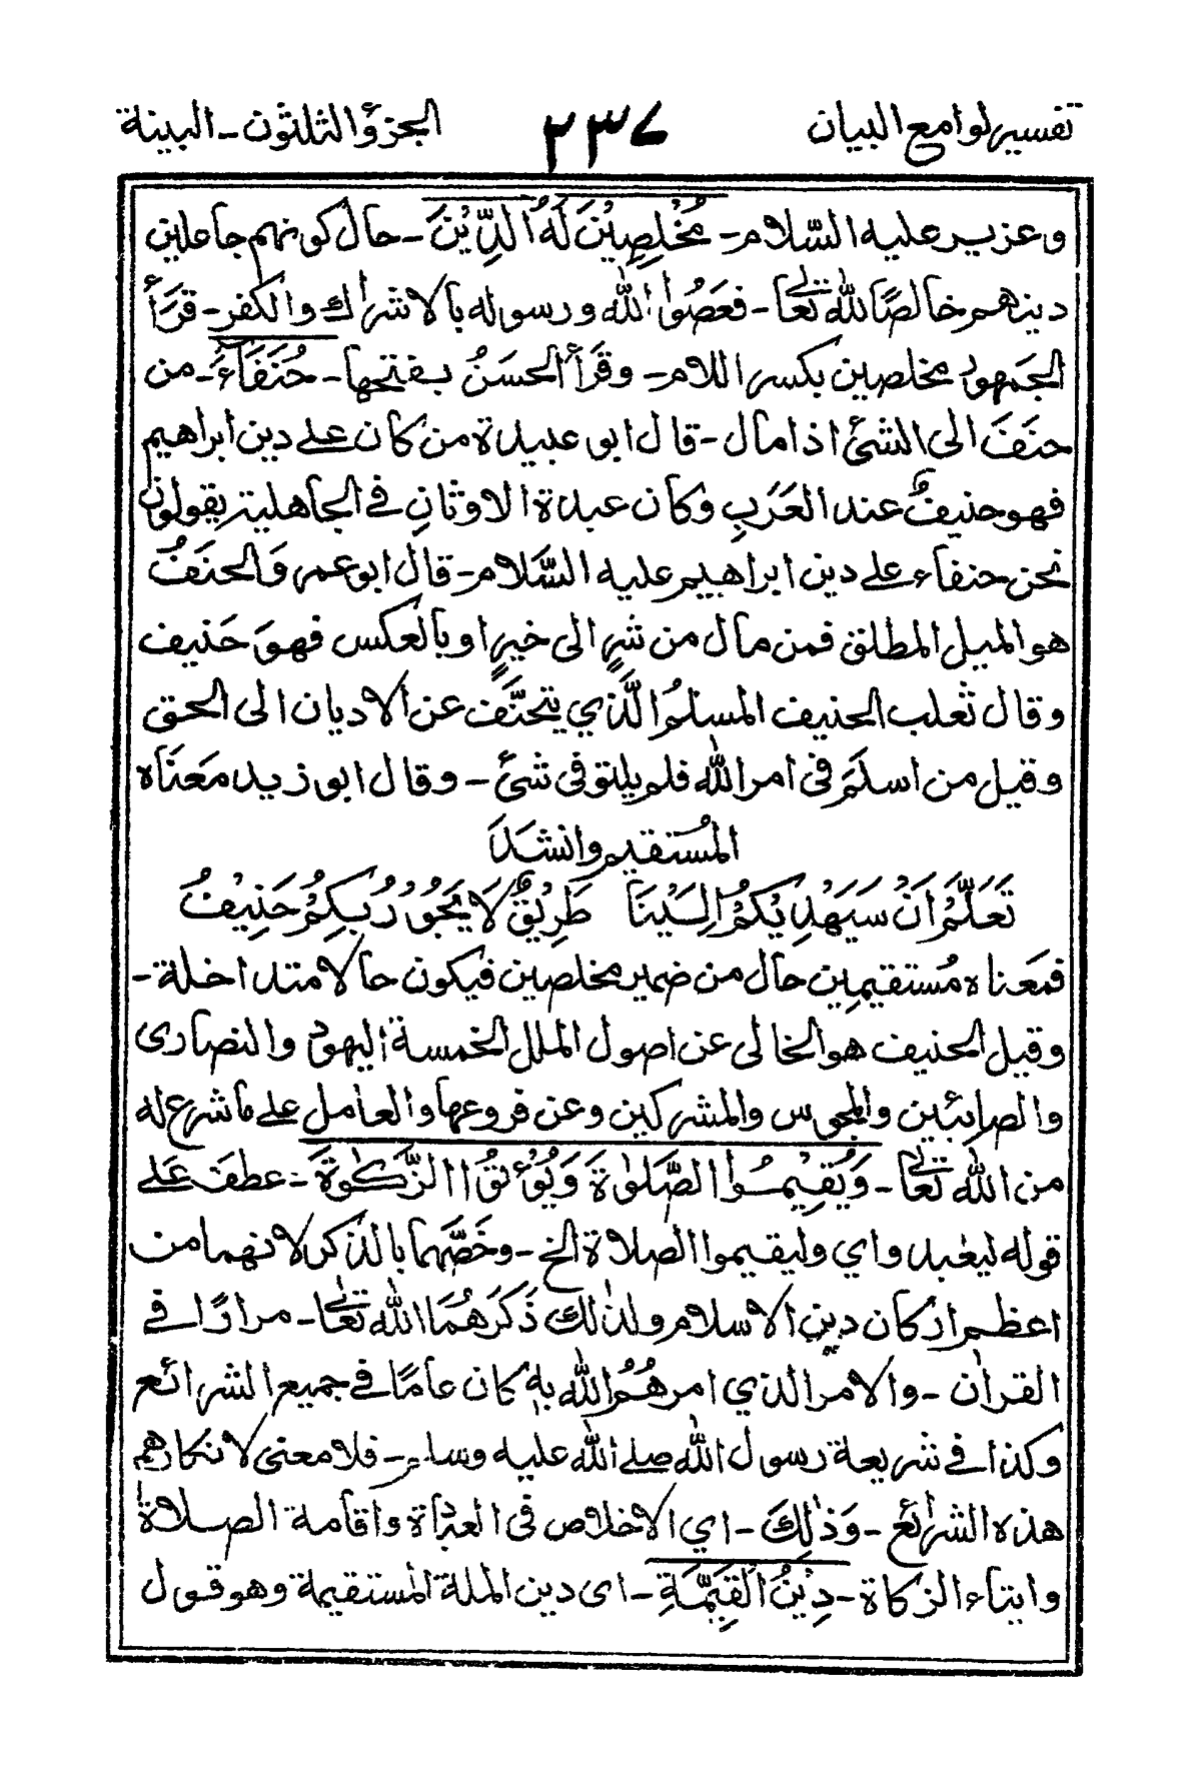 تفسير لوامع البيان ٢٣٧ الجزؤ الثلثون - البينة
وعزير عليه السّلام - مُخْلِصِيْنَ لَهُ الدِّيْنَ - حال كونهم جاعلين
دينهم خالصًا لله تعالى - فعَصُوا الله ورسوله بالاشراك والكفر - قَرَأَ
الجمهور مخلصين بكسر اللام - وقَرَأَ الحسَنُ بفتحها - حُنَفَاءَ - من
حنَفَ الى الشئ اذا مال - قال ابو عبيدة من كان على دين ابراهيم
فهو حنيفٌ عند العَرَبِ وكان عبدة الاوثانِ في الجاهلية يقولون
نحن حنفاء على دين ابراهيم عليه السَّلام - قال ابو عمر والحنَفُ
هو الميل المطلق فمن مال من شرٍ الى خيرٍ او بالعكس فهوَ حَنيف
وقال ثَعلب الحنيف المسلمُ الَّذي يتحنَّف عن الاديان الى الحق
وقيل من اسلَمَ في امر الله فلم يلتو في شئ - وقال ابو زيد معنَاه
المُستقيم وانشَدَ
تَعَلَّمْ اَنْ سَيَهْدِيْكُمْ اِلَيْنَا طَرِيْقٌ لَا يَجُوْرُ بِكُمْ حَنِيْفُ
فمَعناه مُستقيمِين حال من ضمير مخلصين فيكون حالا متداخلة -
وقيل الحنيف هو الخالى عن اصول الملل الخمسة اليهود والنصارى
والصابئين والمجوس والمشركين وعن فروعها والعامل على ما شرع له
من الله تعالى - وَيُقِيْمُوا الصَّلوٰةَ وَيُؤْتُوا الزَّكوٰةَ - عطف عَلى
قوله ليعبدوا اي وليقيموا الصلاة الخ - وخَصَّهما بالذكر لانهما من
اعظم اركان دين الاسلام ولذلك ذَكَرَهُمَا الله تعالى - مرارًا في
القرآن - والامر الذي امرهُمُ الله به كان عامًا في جميع الشرائع
وكذا في شريعة رسول الله صلى الله عليه وسلم - فلا معنى لانكارهم
هذه الشرائع - وَذٰلِكَ - اي الاخلاص في العبادة واقامة الصلاة
وايتاء الزكاة - دِيْنُ الْقَيِّمَةِ - اى دين الملة المستقيمة وهو قول